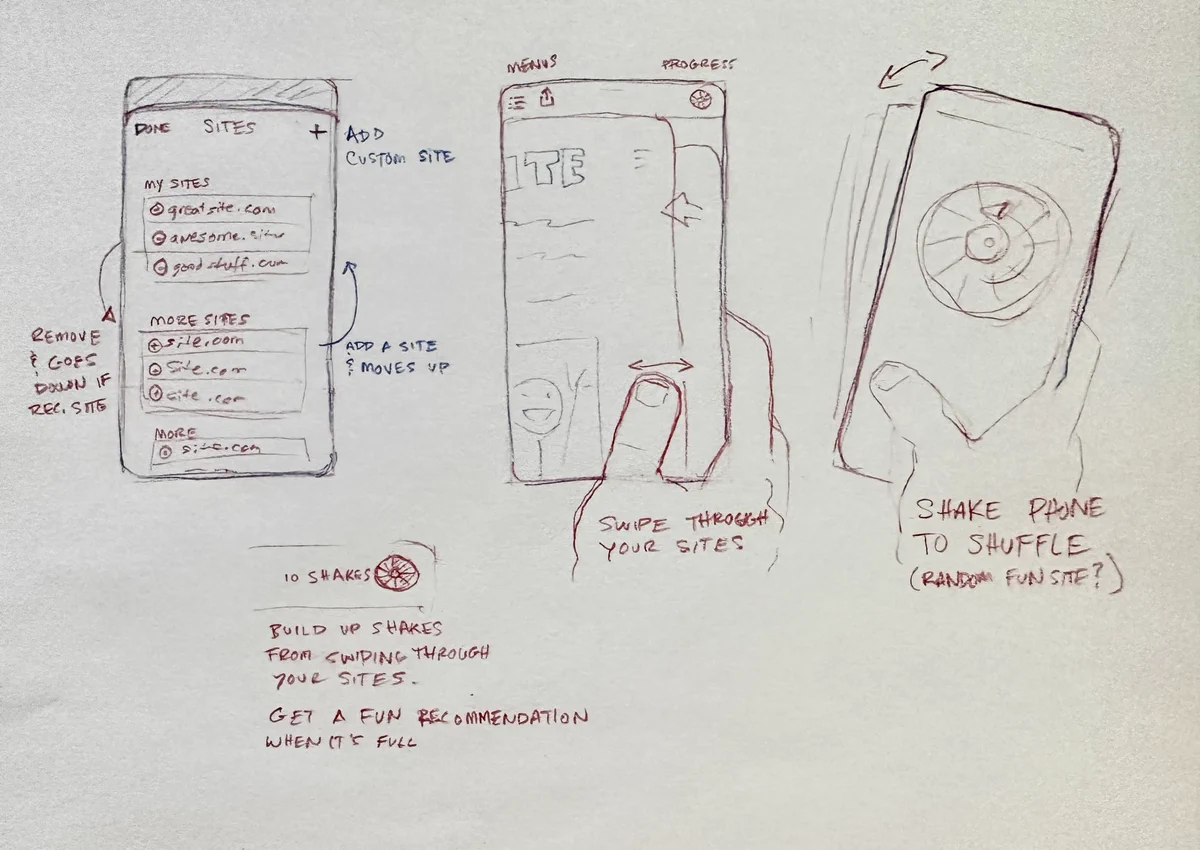 DONE SITES +
ADD
CUSTOM SITE
MY SITES
greatsite.com
awesome.site
goodstuff.com
MORE SITES
site.com
site.com
site.com
MORE
site.com
REMOVE
& GOES
DOWN IF
REC. SITE
ADD A SITE
& MOVES UP
MENUS
PROGRESS
ITE
SWIPE THROUGH
YOUR SITES
SHAKE PHONE
TO SHUFFLE
(RANDOM FUN SITE?)
10 SHAKES
BUILD UP SHAKES
FROM SWIPING THROUGH
YOUR SITES.
GET A FUN RECOMMENDATION
WHEN IT'S FULL